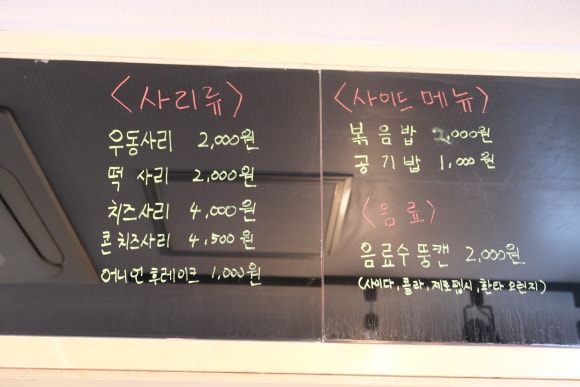 <사리류>
우동사리 2,000원
떡 사리 2,000원
치즈사리 4,000원
콘치즈사리 4,500원
어니언 후레이크 1,000원
<사이드 메뉴>
볶음밥 2,000원
공기밥 1,000원
<음료>
음료수 뚱캔 2,000원
(사이다, 콜라, 제로펩시, 환타 오렌지)